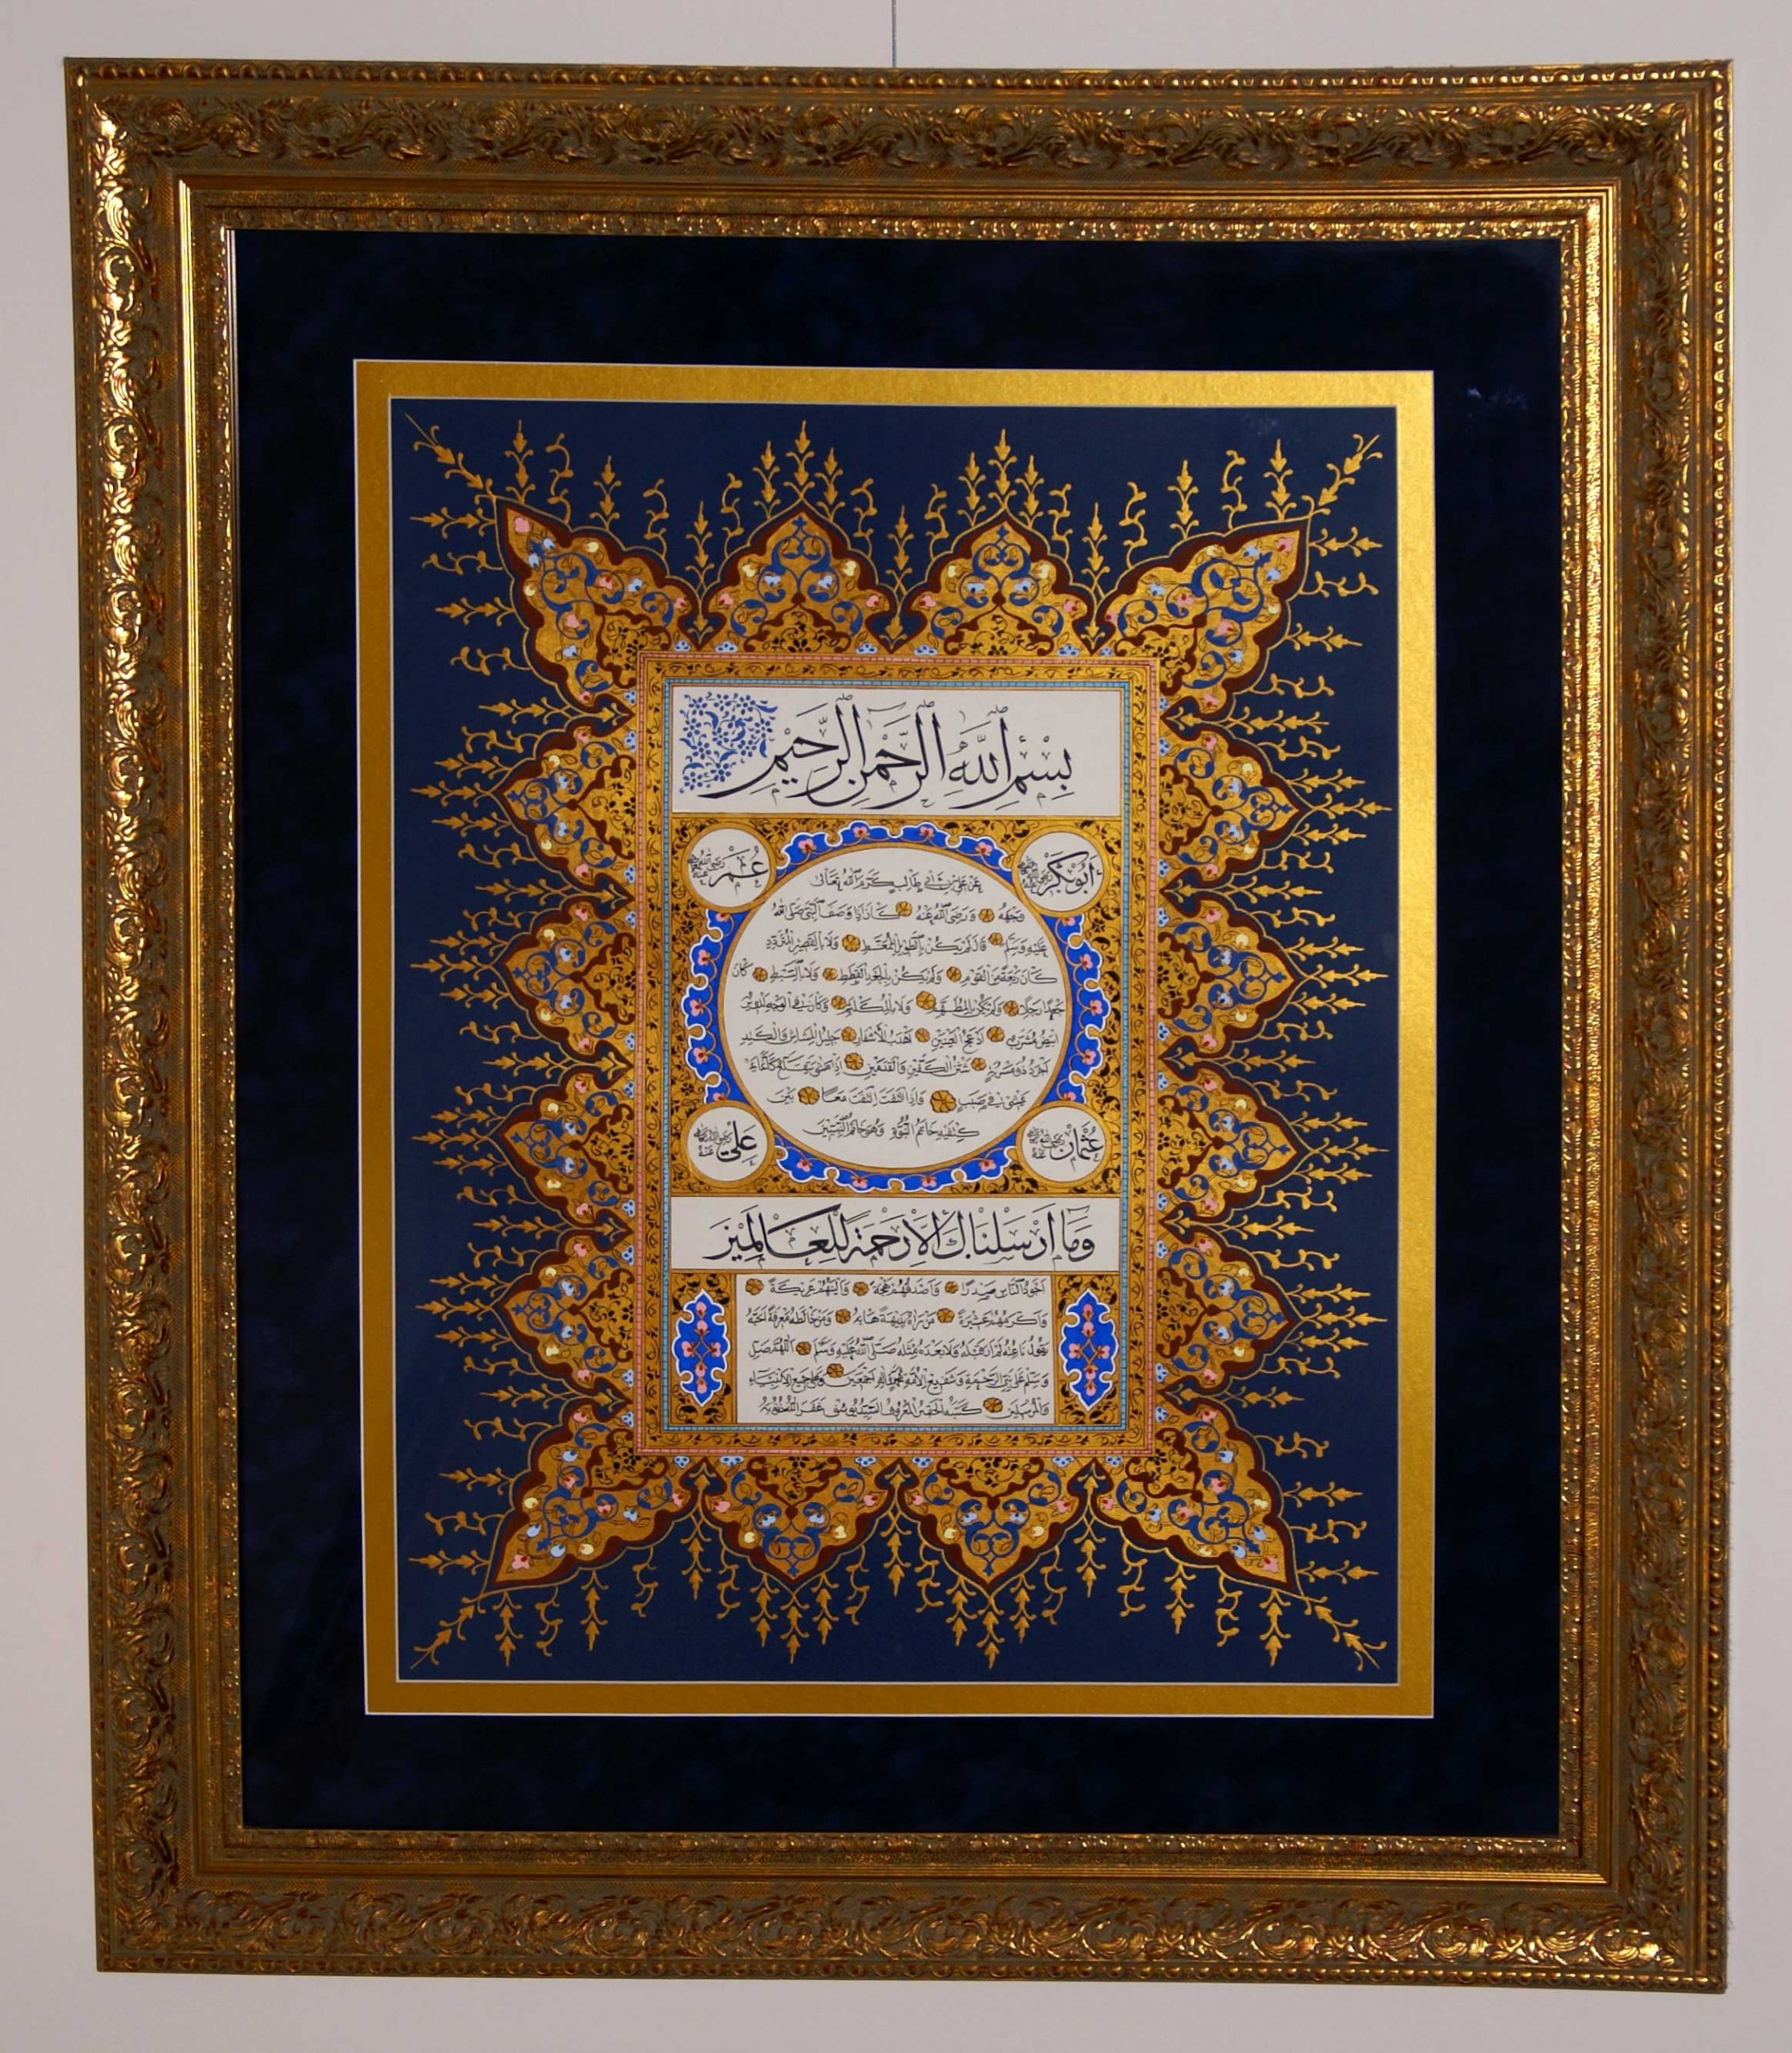 بِسْمِ اللَّهِ الرَّحْمَنِ الرَّحِيمِ
أَبُو بَكْرٍ رضي الله تعالى عنه
عُمَرُ رضي الله تعالى عنه
عَنْ عَلِيِّ بْنِ أَبِي طَالِبٍ كَرَّمَ اللَّهُ تَعَالَى
وَجْهَهُ وَرَضِيَ اللَّهُ عَنْهُ كَانَ إِذَا وَصَفَ النَّبِيَّ صَلَّى اللَّهُ
عَلَيْهِ وَسَلَّمَ قَالَ لَمْ يَكُنْ بِالطَّوِيلِ الْمُمَّغِطِ وَلَا بِالْقَصِيرِ الْمُتَرَدِّدِ
كَانَ رَبْعَةً مِنَ الْقَوْمِ وَلَمْ يَكُنْ بِالْجَعْدِ الْقَطَطِ وَلَا بِالسَّبِطِ كَانَ
جَعْدًا رَجِلًا وَلَمْ يَكُنْ بِالْمُطَهَّمِ وَلَا بِالْمُكَلْثَمِ وَكَانَ فِي الْوَجْهِ تَدْوِيرٌ
أَبْيَضُ مُشْرَبٌ أَدْعَجُ الْعَيْنَيْنِ أَهْدَبُ الْأَشْفَارِ جَلِيلُ الْمُشَاشِ وَالْكَتِدِ
أَجْرَدُ ذُو مَسْرُبَةٍ شَثْنُ الْكَفَّيْنِ وَالْقَدَمَيْنِ إِذَا مَشَى يَتَقَلَّعُ كَأَنَّمَا
يَمْشِي فِي صَبَبٍ وَإِذَا الْتَفَتَ الْتَفَتَ مَعًا بَيْنَ
كَتِفَيْهِ خَاتَمُ النُّبُوَّةِ وَهُوَ خَاتَمُ النَّبِيِّينَ
عُثْمَانُ رضي الله تعالى عنه
عَلِيٌّ رضي الله تعالى عنه
وَمَا أَرْسَلْنَاكَ إِلَّا رَحْمَةً لِلْعَالَمِينَ
أَجْوَدُ النَّاسِ صَدْرًا وَأَصْدَقُهُمْ لَهْجَةً وَأَلْيَنُهُمْ عَرِيكَةً
وَأَكْرَمُهُمْ عَشِيرَةً مَنْ رَآهُ بَدِيهَةً هَابَهُ وَمَنْ خَالَطَهُ مَعْرِفَةً أَحَبَّهُ
يَقُولُ نَاعِتُهُ لَمْ أَرَ قَبْلَهُ وَلَا بَعْدَهُ مِثْلَهُ صَلَّى اللَّهُ عَلَيْهِ وَسَلَّمَ اَللَّهُمَّ صَلِّ
وَسَلِّمْ عَلَى نَبِيِّ الرَّحْمَةِ وَشَفِيعِ الْأُمَّةِ مُحَمَّدٍ وَآلِهِ أَجْمَعِينَ وَعَلَى جَمِيعِ الْأَنْبِيَاءِ
وَالْمُرْسَلِينَ كَتَبَهُ الْحَقِيرُ الْمَعْرُوفُ السَّيِّدُ غَفَرَ اللَّهُ ذُنُوبَهُ